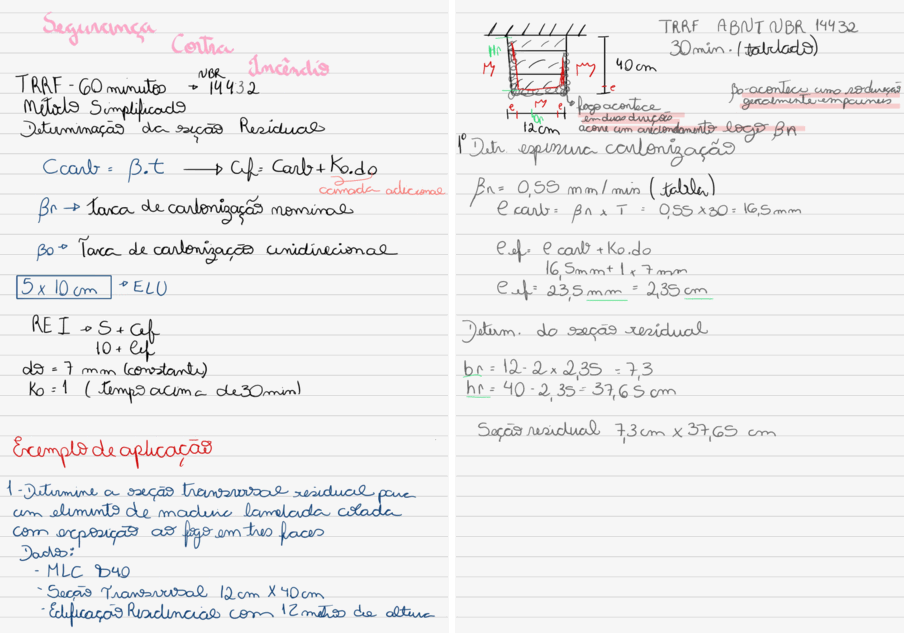 Segurança
Contra
Incêndio
TRRF - 60 minutos → NBR 14432
Método Simplificado
Determinação da seção Residual
Ccarb = β.t → Cef = Carb + K0.d0
camada adicional
βn → Taxa de carbonização nominal
β0 → Taxa de carbonização unidirecional
5 x 10 cm → ELU
REI → 5 + Cef
10 + Cef
d0 = 7 mm (constante)
K0 = 1 (tempo acima de 30 min)
Exemplo de aplicação
1 - Determine a seção transversal residual para
um elemento de madeira lamelada colada
com exposição ao fogo em tres faces
Dados:
- MLC D40
- Seção Transversal 12 cm X 40 cm
- Edificação Residencial com 12 metros de altura
TRRF ABNT NBR 14432
30 min. (tabelado)
Hr
40 cm
e
e
e
br
12 cm
fogo acontece
em duas direções
acorre um arredondamento logo βn
β0 - acontece uma so direção
geralmente em paineis
1º Detr. espessura carbonização
βn = 0,55 mm/min (tabela)
e carb = βn x T = 0,55 x 30 = 16,5 mm
e ef = e carb + K0.d0
16,5mm + 1 x 7 mm
e ef = 23,5 mm = 2,35 cm
Determ. do seção residual
br = 12 - 2 x 2,35 = 7,3
hr = 40 - 2,35 = 37,65 cm
Seção residual 7,3 cm x 37,65 cm